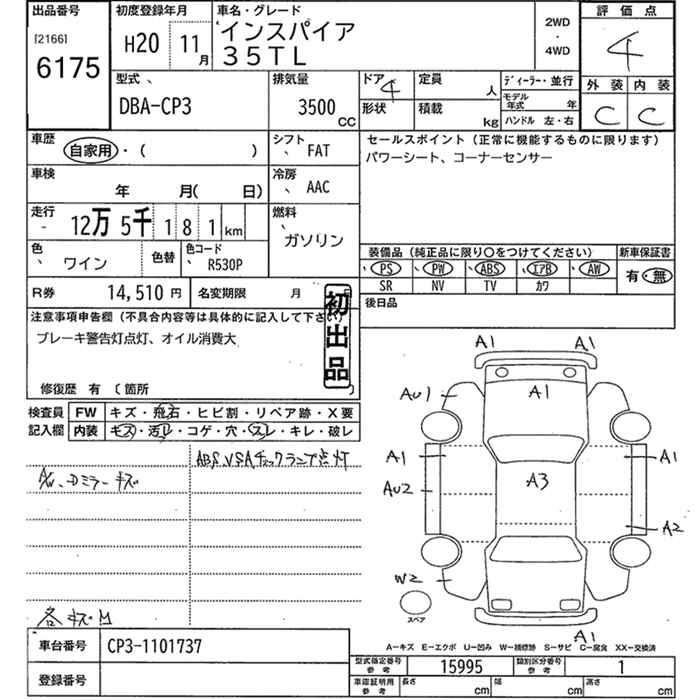 出品番号
[2166]
6175
初度登録年月
H20 11月
車名・グレード
インスパイア
35TL
2WD
・
4WD
評価点
4
外装 内装
C C
型式
DBA-CP3
排気量
3500 CC
ドア 4
形状
定員 人
積載 kg
ディーラー・並行
モデル年式 年
ハンドル 左・右
車歴
自家用・( )
シフト
FAT
セールスポイント(正常に機能するものに限ります)
パワーシート、コーナーセンサー
車検
年 月( 日)
冷房
AAC
走行
12万 5千 1 8 1 km
燃料
ガソリン
色
ワイン
色替
色コード
R530P
装備品(純正品に限り○をつけてください)
新車保証書
PS PW ABS エアB AW
有・無
SR NV TV カワ
R券 14,510 円
名変期限 月 日
後日品
注意事項申告欄(不具合内容等は具体的に記入して下さい)
初出品
ブレーキ警告灯点灯、オイル消費大
修復歴 有 〔箇所
検査員記入欄
FW キズ・飛石・ヒビ割・リペア跡・X要
内装 キズ・汚レ・コゲ・穴・スレ・キレ・破レ
ABS、VSAチェックランプ点灯
A/W、Dミラーキズ
各キズM
A1 A1
A1
AU1
A1 A1
A3
AU2
A2
W2
スペア
A1
A−キズ E−エクボ U−凹み W−補修跡 S−サビ C−腐食 XX−交換済
車台番号 CP3-1101737
登録番号
型式指定番号 参考 15995
類別区分番号 参考 1
車庫証明用 参考
長さ cm 幅 cm 高さ cm